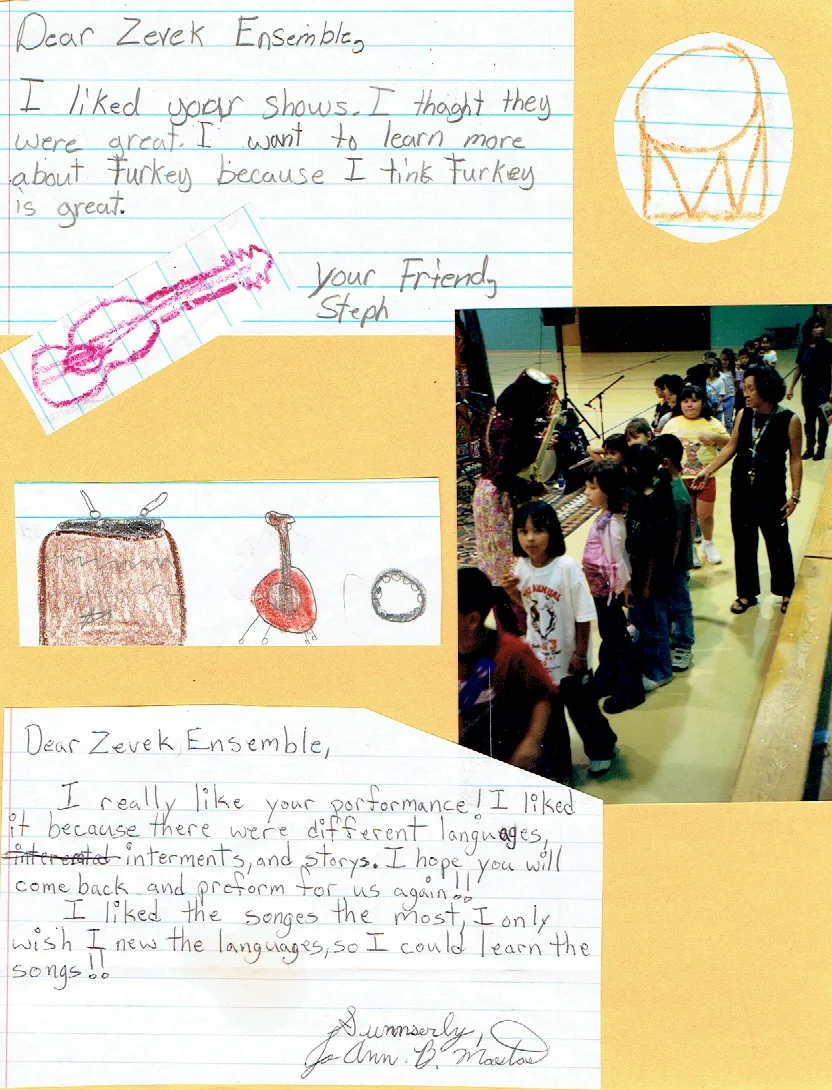 Dear Zevek Ensemble,
I liked your shows. I thaght they
were great. I want to learn more
about Turkey because I tink Turkey
is great.
your Friend,
Steph
Dear Zevek Ensemble,
I really like your porformance! I liked
it because there were different languages,
interested interments, and storys. I hope you will
come back and preform for us again!!
I liked the songes the most, I only
wish I new the languages, so I could learn the
songs!!
Sunnserly,
Jo Ann. B.